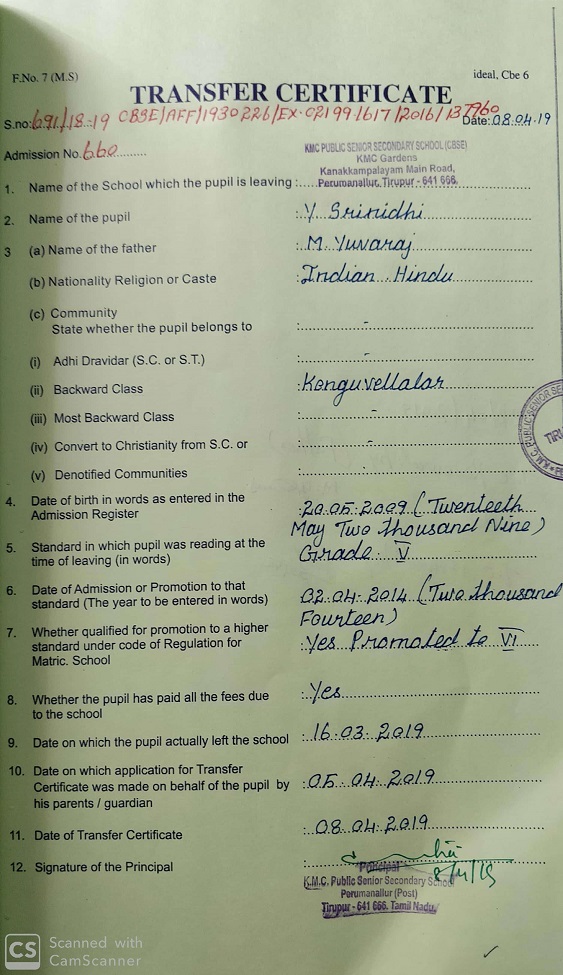 F.No. 7 (M.S) ideal, Cbe 6
TRANSFER CERTIFICATE
S.no: 691/18-19 CBSE/AFF/1930226/EX-02199/617/2016/137960 Date: 08.04.19
Admission No. 660
KMC PUBLIC SENIOR SECONDARY SCHOOL (CBSE)
KMC Gardens
Kanakkampalayam Main Road,
1. Name of the School which the pupil is leaving : Perumanallur, Tirupur - 641 666.
2. Name of the pupil : Y. Srinidhi
3 (a) Name of the father : M. Yuvaraj
(b) Nationality Religion or Caste : Indian Hindu
(c) Community
State whether the pupil belongs to : -
(i) Adhi Dravidar (S.C. or S.T.) : -
(ii) Backward Class : Konguvellalar
(iii) Most Backward Class : -
(iv) Convert to Christianity from S.C. or : -
(v) Denotified Communities : -
4. Date of birth in words as entered in the : 20.05.2009 (Twenteeth
Admission Register May Two thousand Nine)
5. Standard in which pupil was reading at the : Grade V
time of leaving (in words)
6. Date of Admission or Promotion to that : 02.04.2014 (Two thousand
standard (The year to be entered in words) Fourteen)
7. Whether qualified for promotion to a higher : Yes Promoted to VI
standard under code of Regulation for
Matric. School
8. Whether the pupil has paid all the fees due : Yes
to the school
9. Date on which the pupil actually left the school : 16.03.2019
10. Date on which application for Transfer : 05.04.2019
Certificate was made on behalf of the pupil by
his parents / guardian
11. Date of Transfer Certificate : 08.04.2019
12. Signature of the Principal : 8/4/19
Principal
K.M.C. Public Senior Secondary School
Perumanallur (Post)
Tirupur - 641 666. Tamil Nadu.
CS Scanned with
CamScanner